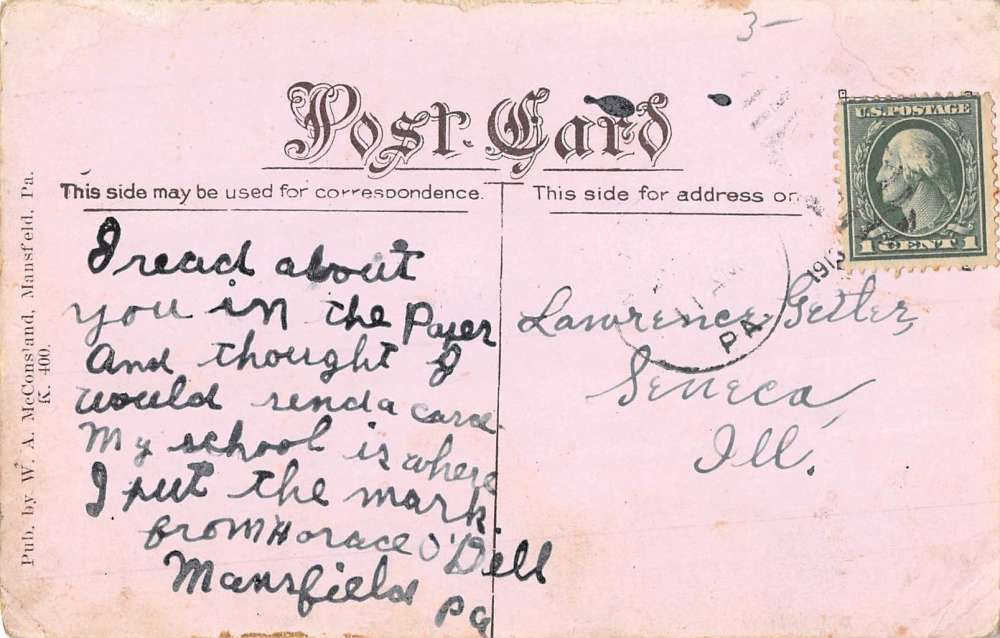 3-
Post Card
This side may be used for correspondence.
This side for address on
U.S. POSTAGE
1 CENT 1
1912
PA
Pub. by W. A. McConsland, Mansfeld, Pa.
K. 400.
I read about
you in the Paper
And thought I
would send a card
My school is where
I put the mark.
from Horace O'Dell
Mansfield Pa
Lawrence Geiler,
Seneca,
Ill.